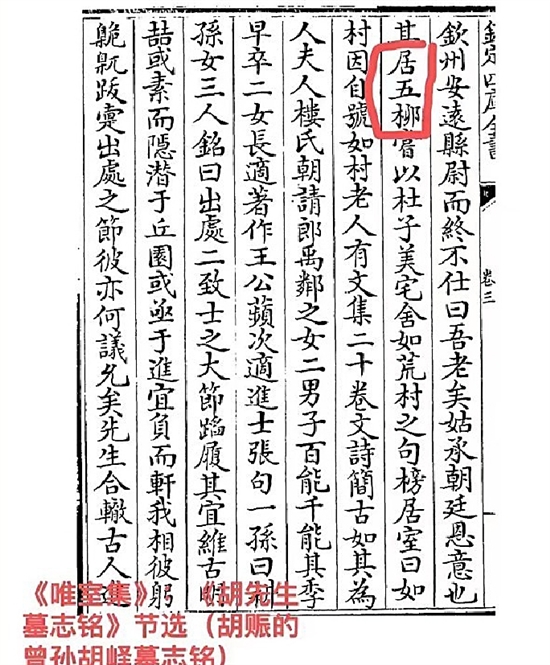 欽定四庫全書
卷三
欽州安遠縣尉而終不仕曰吾老矣姑承朝廷恩意也
其居五柳嘗以杜子美宅舍如荒村之句榜居室曰如
村因自號如村老人有文集二十卷文詩簡古如其為
人夫人樓氏朝請郎禹鄰之女二男子百能千能其季
早卒二女長適著作王公蘋次適進士張句一孫曰
孫女三人銘曰出處二致士之大節蹈履其宜維古明
喆或素而隱潛于丘園或亟于進宜負而軒我相彼躬
臲卼跋疐出處之節彼亦何議允矣先生合轍古人進
《唯室集》 《胡先生
墓志铭》节选（胡赈的
曾孙胡峄墓志铭）